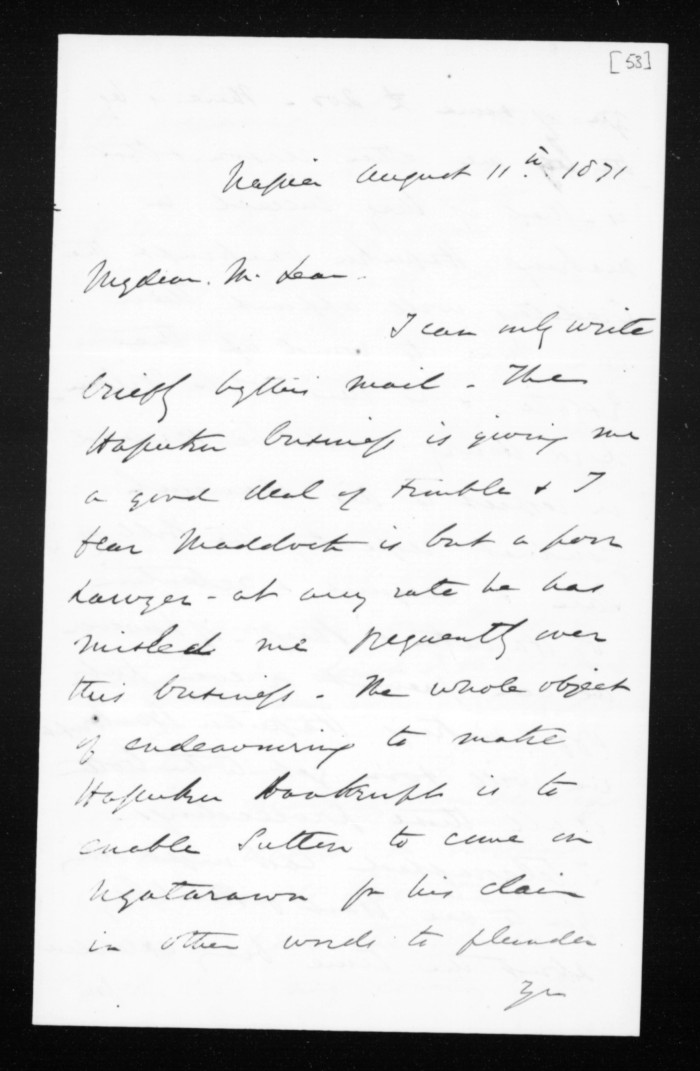 [53]
Napier August 11th. 1871
My dear Mr. McLean.
I can only write
briefly by this mail - The
Hapuku business is giving me
a good deal of trouble & I
fear Maddock is but a poor
Lawyer - at any rate he has
misled me frequently over
this business - The whole object
of endeavouring to make
Hapuku bankrupt is to
enable Sutton to come on
Ngatarawa for his claim
in other words to plunder